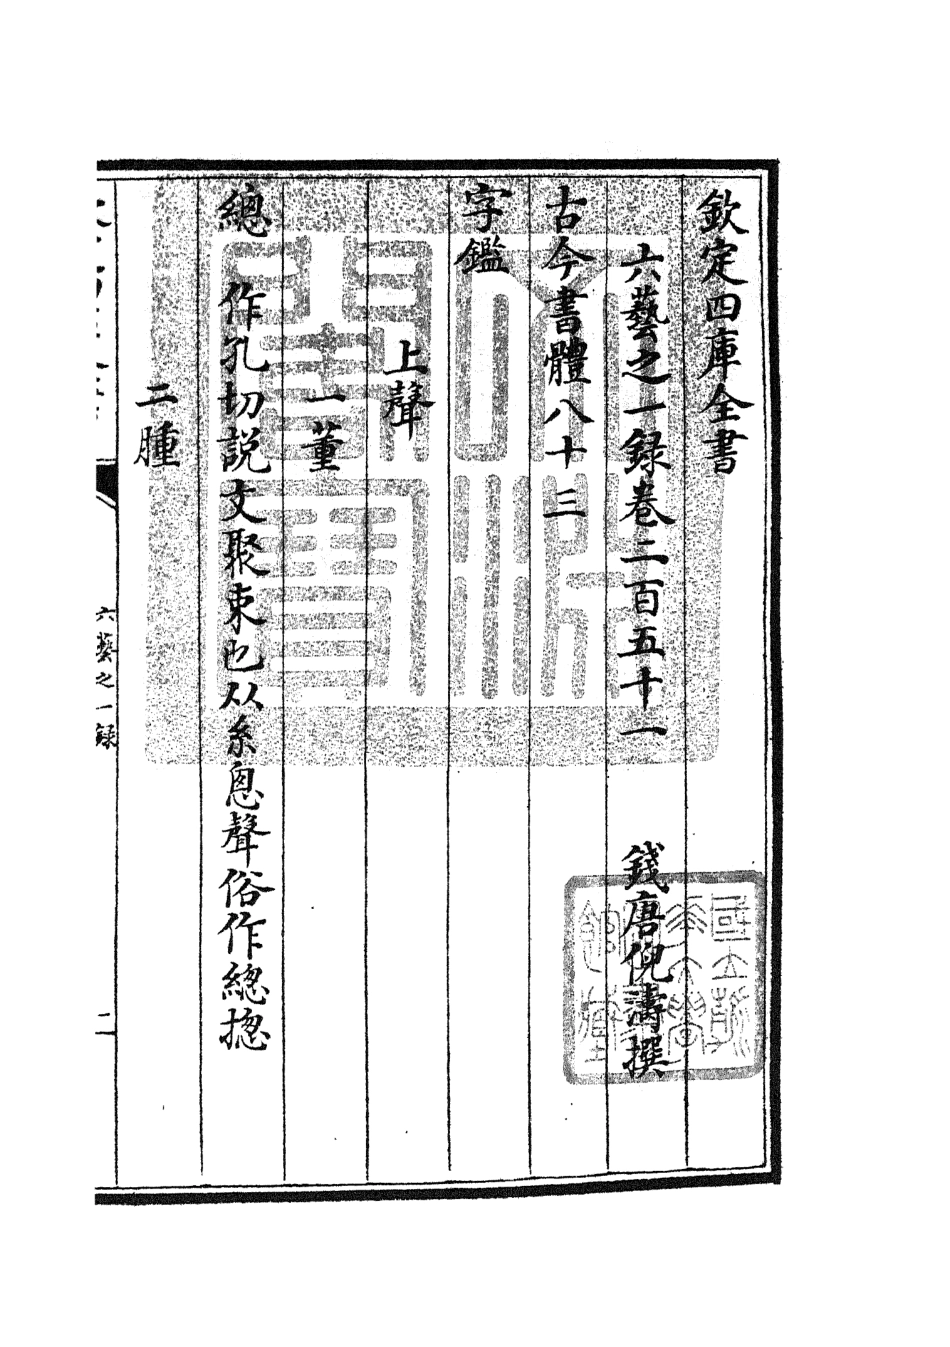 欽定四庫全書
六藝之一録卷二百五十一
錢唐倪濤撰
古今書體八十三
字鑑
上聲
一董
總 作孔切説文聚束也从糸悤聲俗作緫揔
二腫
六藝之一録
二